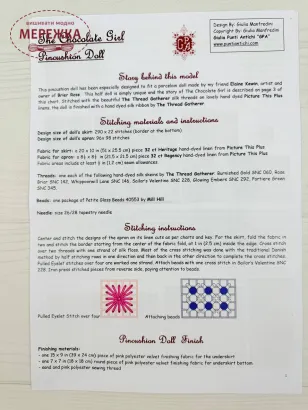 ВИШИВАТИ МОДНО
МЕРЕЖКА
The Chocolate Girl
Pincushion Doll
Design By: Giulia Manfredini
Copyright By: Giulia Manfredini
Giulia Punti Antichi "GPA"
www.puntiantichi.com
Story behind this model
This pincushion doll has been especially designed to fit a porcelain doll made by my friend Elaine Kewin, artist and
owner of Briar Rose. This half doll is simply unique and the story of The Chocolate Girl is described on page 3 of
this chart. Stitched with the beautiful The Thread Gatherer silk threads on lovely hand dyed Picture This Plus
linens, the doll is finished with a hand dyed silk ribbon by The Thread Gatherer.
Stitching materials and instructions
Design size of doll's skirt: 290 x 22 stitches (border at the bottom)
Design size of doll's apron: 96 x 98 stitches
Fabric for skirt: x 20 x 10 in (51 x 25.5 cm) piece 32 ct Heritage hand dyed linen from Picture This Plus
Fabric for apron: x 8½ x 8½ in (21.5 x 21.5 cm) piece 32 ct Regency hand dyed linen from Picture This Plus
Fabric areas include at least ½ in (1.2 cm) seam allowances
Threads: one each of the following hand dyed silk skeins by The Thread Gatherer: Burnished Gold SNC 060, Rose
SNC 345.
Beads: one package of Petite Glass Beads 40553 by Mill Hill
Needle: size 26/28 tapestry needle
Stitching instructions
Center and stitch the designs of the apron on its linen cuts as per charts and key. For the skirt, fold the fabric in
two and stitch the border starting from the center of the fabric fold, at 1 in (2.5 cm) inside the edge. Cross stitch
over two threads with one strand of silk floss. Most of the cross stitching was done with the traditional Danish
method by half stitching rows in one direction and then back in the other direction to complete the cross stitches.
Pulled Eyelet Stitches over four are worked one strand. Attach beads with one cross stitch in Sailor's Valentine SNC
228. Iron pressed stitched pieces from reverse side, paying attention to beads.
Pulled Eyelet Stitch over four
Attaching beads
Pincushion Doll Finish
Finishing materials:
- one 15 x 9 in (39 x 24 cm) piece of pink polyester velvet finishing fabric for the underskirt
- one 7 x 7 in (18 x 18 cm) round piece of pink polyester velvet finishing fabric for underskirt bottom.
- sand and pink polyester sewing thread